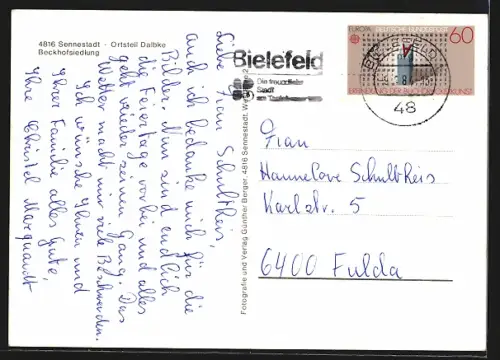 4816 Sennestadt - Ortsteil Dalbke
Beckhofsiedlung
Liebe Frau Schultheis,
auch ich bedanke mich für die
Bilder. Nun sind endlich
die Feiertage vorbei und alles
geht wieder seinen Gang. Das
Wetter macht mir viel Beschwerden.
Ich wünsche Ihnen und
Ihrer Familie alles Gute,
Ihre Christel Marquardt
Fotografie und Verlag Günther Berger, 4816 Sennestadt,
Bielefeld
Die freundliche
Stadt
48
EUROPA
DEUTSCHE BUNDESPOST
60
ERFINDUNG DER BUCHDRUCKKUNST
Frau
Hannelore Schultheis
Karlstr. 5
6400 Fulda